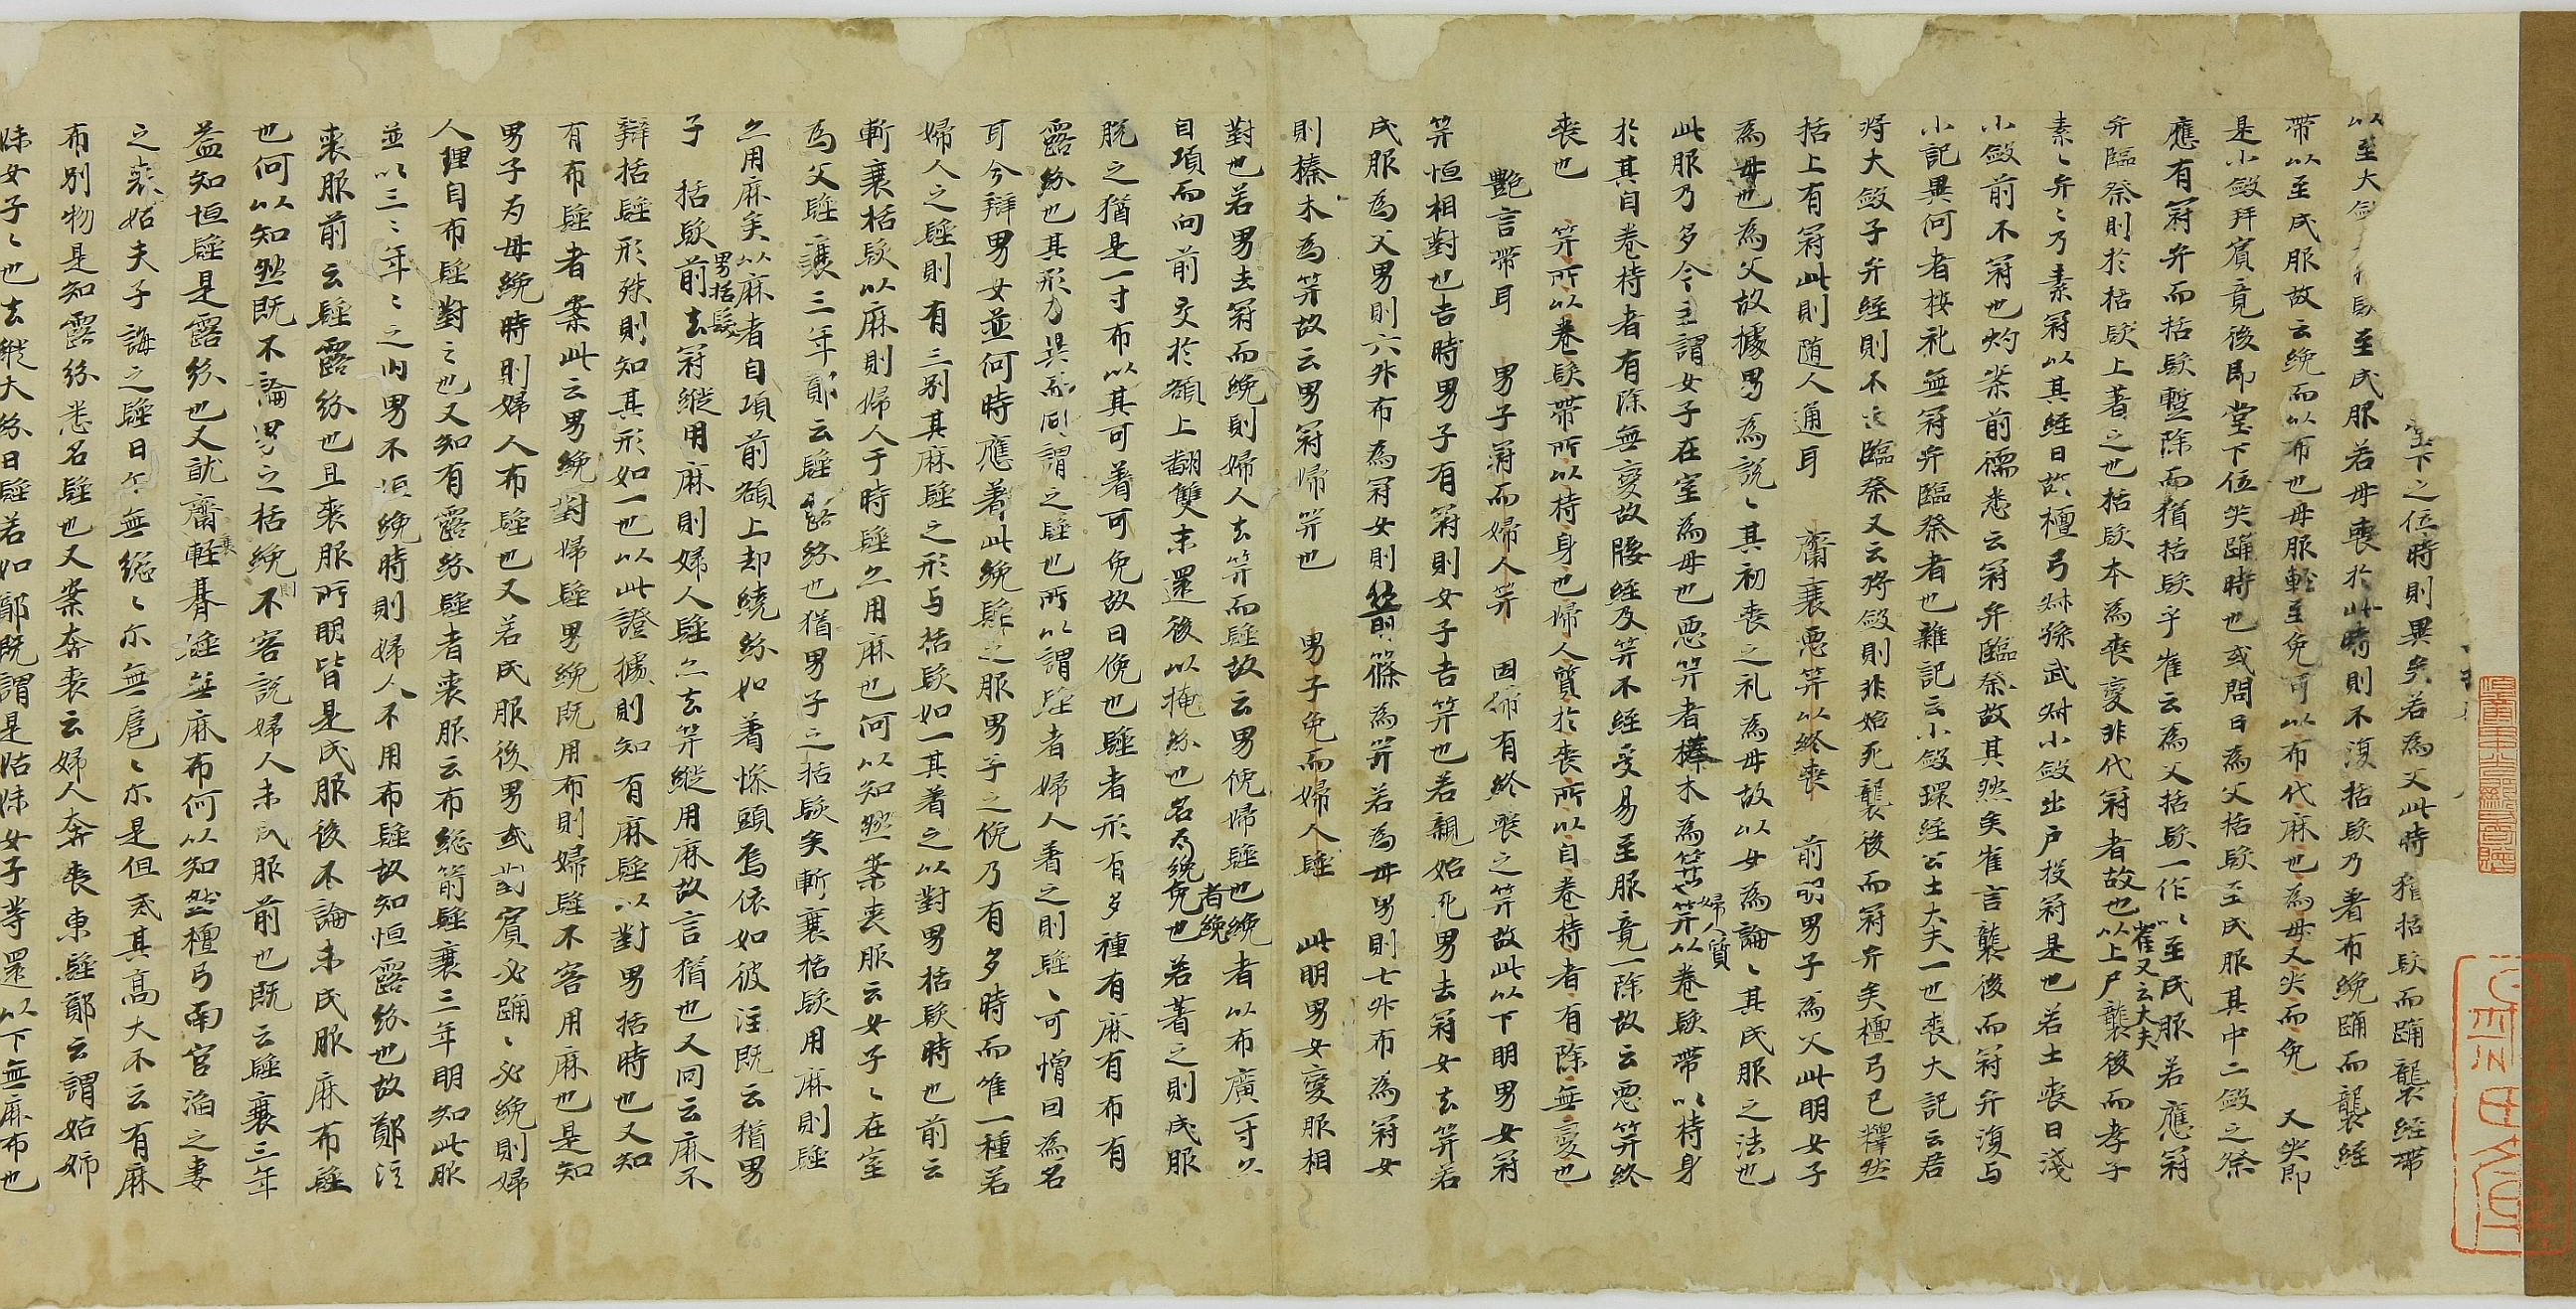 堂下之位時則異矣若為父此時猶括髮而踊襲絰帶
以至大斂至成服若母喪於此時則不復括髮乃著布絻踊而襲絰
帶以至成服故云絻而以布也母服輕至免可以布代麻也為母又哭而免 又哭即
是小斂拜賓竟後即堂下位哭踊時也或問曰為父括髮至成服其中二斂之祭
應有冠弁而括髮暫除而猶括髮乎崔云為父括髮一作以至成服若應冠
弁臨祭則於括髮上著之也括髮本為喪變非代冠者故也崔又云大夫以上尸襲後而孝子
素〻弁〻乃素冠以其絰曰故檀弓叔孫武叔小斂出戶投冠是也若士喪日淺
小斂前不冠也灼案前儒悉云冠弁臨祭故其然矣崔言襲後而冠弁復与
小記異何者按礼無冠弁臨祭者也雜記云小斂環絰公士大夫一也喪大記云君
将大斂子弁絰則不臨祭又云将斂則非始死襲後而冠弁矣檀弓已釋然
括上有冠此則随人通耳 齊衰惡笄以終喪 前明男子為父此明女子
為母也為父故據男為説〻其初喪之礼為母故以女為論〻其成服之法也
此服乃多今主謂女子在室為母也惡笄者榛木為笄也婦人質笄以卷髮帶以持身
於其自卷持者有除無變故腰絰及笄不經受易至服竟一除故云惡笄終
喪也 笄所以卷髮帶所以持身也婦人質於喪所以自卷持者有除無變也
艷言帶耳 男子冠而婦人笄 因婦有終喪之笄故此以下明男女冠
笄恒相對也吉時男子有冠則女子吉笄也若親始死男去冠女去笄若
成服為父男則六升布為冠女則箭篠為笄若為母男則七升布為冠女
則榛木為笄故云男冠婦笄也 男子免而婦人髽 此明男女變服相
對也若男去冠而絻則婦人去笄而髽故云男俛婦髽也絻者以布廣一寸亦
自項而向前交於額上翻雙末還後以掩紒也名為絻者絻免也若著之則成服
脫之猶是一寸布以其可著可免故曰俛也髽者形有多種有麻有布有
露紒也其形乃異而同謂之髽也所以謂髽者婦人著之則髽〻可憎因為名
耳今辯男女並何時應著此絻髽之服男子之俛乃有多時而唯一種若
婦人之髽則有三别其麻髽之形与括髮如一其著之以對男括髮時也前云
斬衰括髮以麻則婦人于時髽亦用麻也何以知然案喪服云女子〻在室
為父髽衰三年鄭云髽露紒也猶男子之括髮矣斬衰括髮用麻則髽
亦用麻矣以麻者自項前額上却繞紒如著幓頭焉依如彼注既云猶男
子 括髮男括髮前去冠縰用麻則婦人髽亦去笄縰用麻故言猶也又同云麻不
辯括髽形殊則知其形如一也以此證據則知有麻髽以對男括時也又知
有布髽者案此云男絻對婦髽男絻既用布則婦髽不容用麻也是知
男子为母絻時則婦人布髽也又若成服後男或對賓必踊〻必絻則婦
人理自布髽對之也又知有露紒髽者喪服云布總箭髽衰三年明知此服
並以三〻年〻之内男不恒絻時則婦人不用布髽故知恒露紒也故鄭注
喪服前云髽露紒也且喪服所明皆是成服後不論未成服麻布髽
也何以知然既不論男之括絻則不容説婦人未成服前也既云髽衰三年
益知恒髽是露紒也又就齊衰輕朞髽無麻布何以知然檀弓南宫滔之妻
之喪姑夫子誨之髽曰尒無縂〻尒無扈〻尒是但戒其高大不云有麻
布别物是知露紒悉名髽也又案奔喪云婦人奔喪東髽鄭云謂姑姊
妹女子〻也去縰大紒曰髽若如鄭既謂是姑妹女子等還以下無麻布也